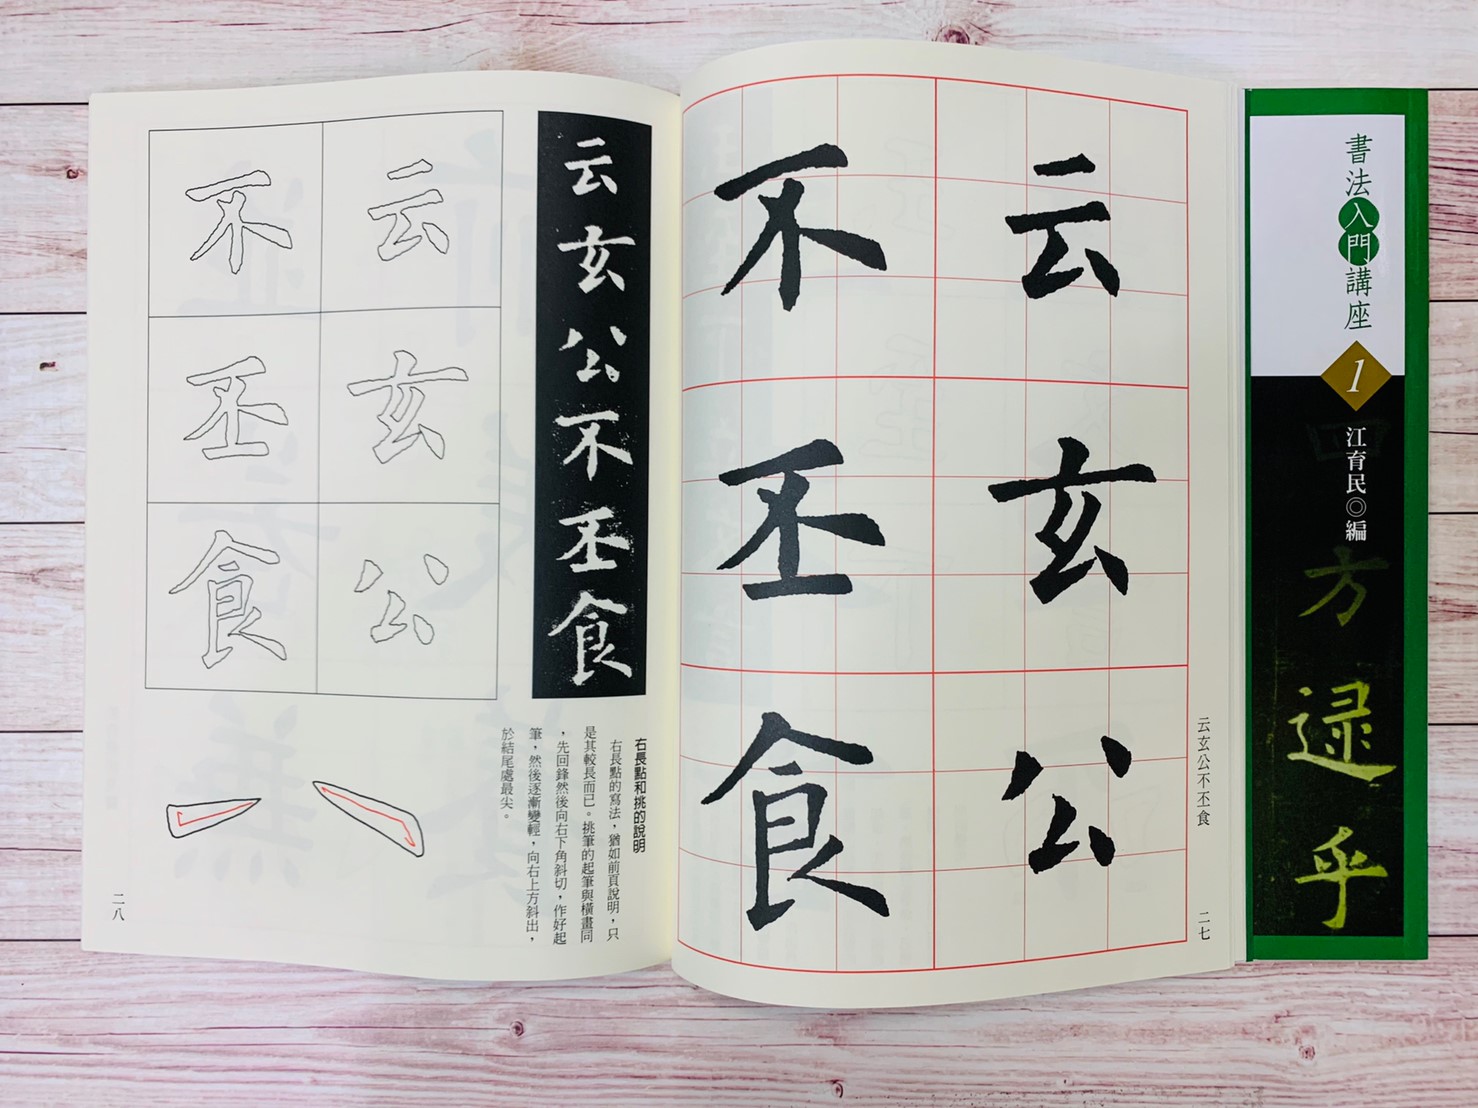 書法入門講座
1
江育民◎編
四方逯乎
云玄公不丕食
二七
云玄公
不丕食
云玄公不丕食
云玄公
不丕食
右長點和挑的說明
右長點的寫法，猶如前頁說明，只
是其較長而已。挑筆的起筆與橫畫同
，先回鋒然後向右下角斜切，作好起
筆，然後逐漸變輕，向右上方斜出，
於結尾處最尖。
二八